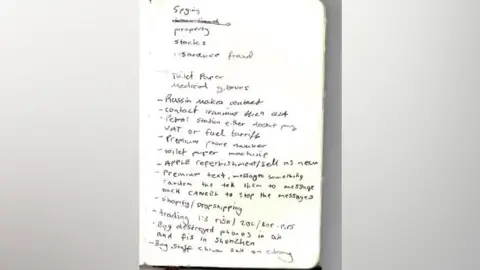 Spying
property
stocks
insurance fraud
Toilet Paper
Medicinal gloves
- Russia makes contact
- contact iranians
- Petrol station either doesnt pay
VAT or fuel tariff
- Premium phone number
- toilet paper machine
- APPLE reperbishment/sell as new
- Premium text, message something
random the tell them to message
back CANCEL to stop the messages
- Shopify/Dropshipping
- trading 1:3 risk/
- Buy destroyed phones in
and fix in Shenzhen
- Buy stuff china sell on